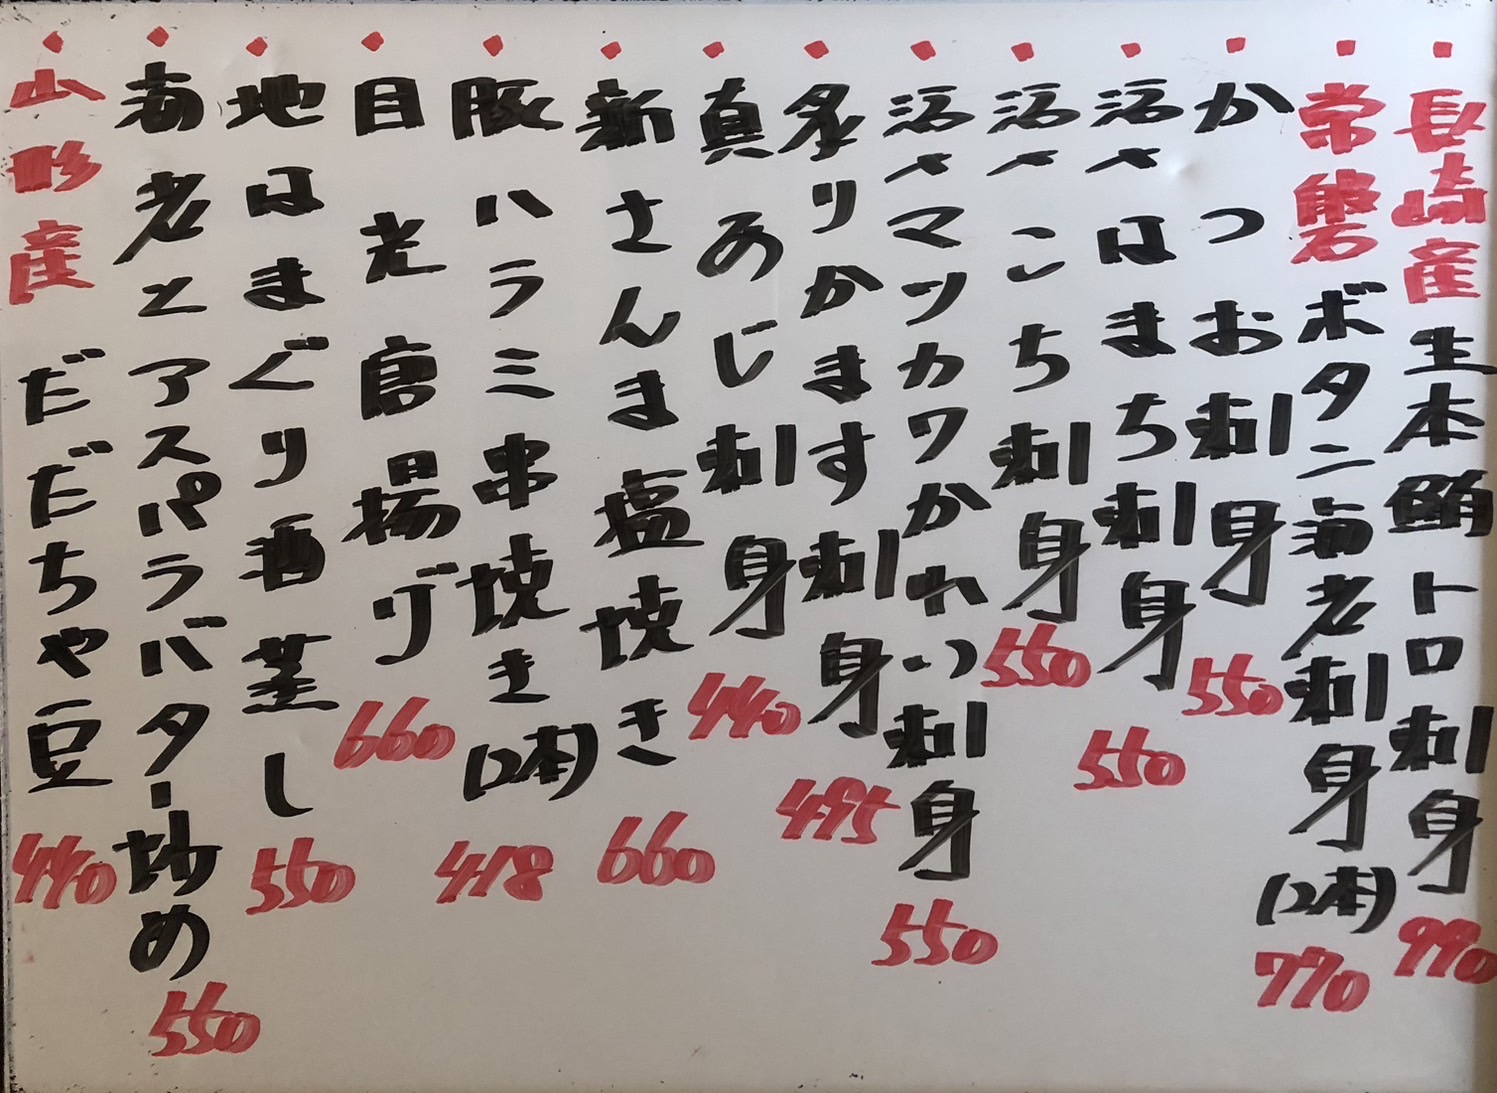 長崎産生本鮪トロ刺身 990
常磐ボタン海老刺身(2本) 770
かつお刺身 550
活〆はまち刺身 550
活〆こち刺身 550
活〆マツカワかれい刺身 550
炙りかます刺身 495
真あじ刺身 440
新さんま塩焼き 660
豚ハラミ串焼き(2本) 418
目光唐揚げ 660
地はまぐり酒蒸し 550
海老とアスパラバター炒め 550
山形産だだちゃ豆 440